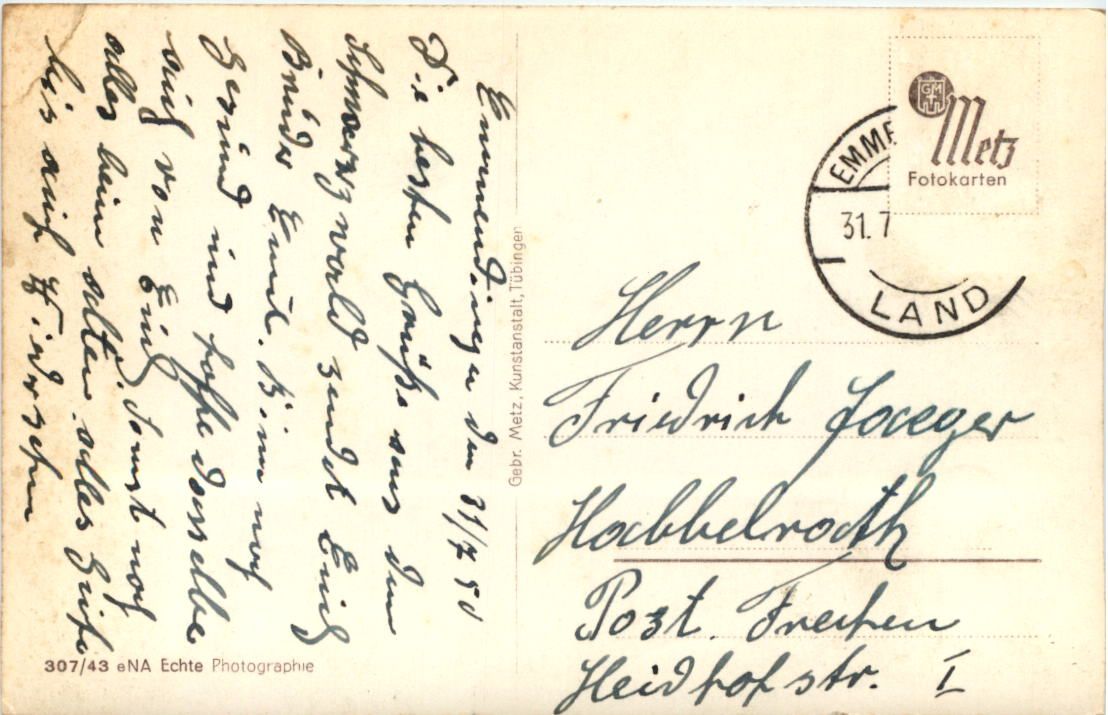 Emmendingen den 31/7 50
Die besten Grüße aus dem
Schwarzwald sendet Euch
Bruder Emil. Bin noch
gesund und hoffe dasselbe
auch von Euch. Sonst noch
alles beim alten. alles Gute
bis auf Wiedersehen
Gebr. Metz, Kunstanstalt, Tübingen
307/43 eNA Echte Photographie
GM
Metz
Fotokarten
EMME
31.7
LAND
Herrn
Friedrich Jaeger
Habbelrath
Post. Frechen
Heidhofstr. I